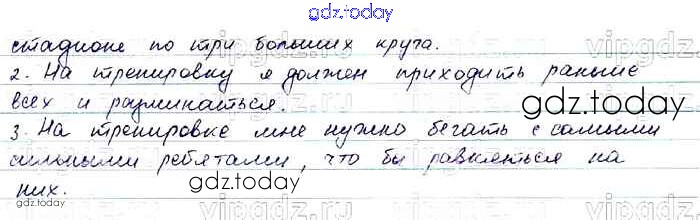 gdz.today
стадионе по три больших круга.
2. На тренировку я должен приходить раньше
всех и разминаться.
gdz.today
3. На тренировке мне нужно бегать с самыми
сильными ребятами, что бы равняться на
них.
gdz.today
gdz.today